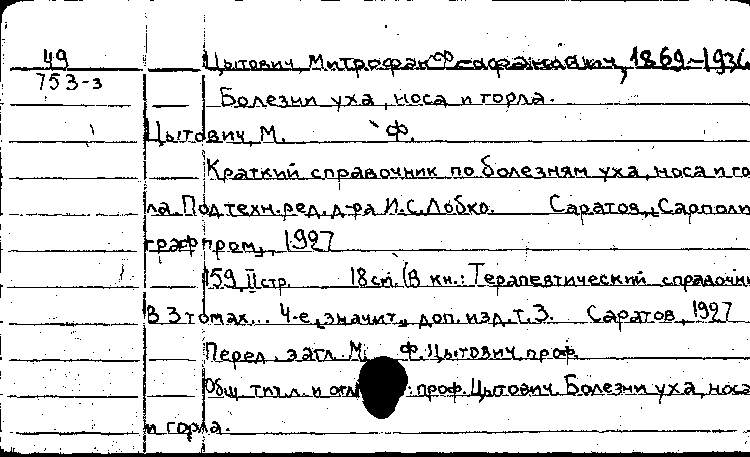 49
753-3
Цытович, Митрофан Феофанович, 1869-1936
Болезни уха, носа и горла.
Цытович, М. Ф.
Краткий справочник по болезням уха, носа и го
ла. Под техн. ред. д-ра И.С. Лобко. Саратов, "Сарполи
графпром", 1927
159, II стр. 18 см. (В кн.: Терапевтический справочни
В 3 томах... 4-е, значит. доп. изд. т. 3. Саратов, 1927
Перед загл. М. Ф. Цытович, проф.
Общ. тит. л. и : проф. Цытович. Болезни уха, носа
и горла.